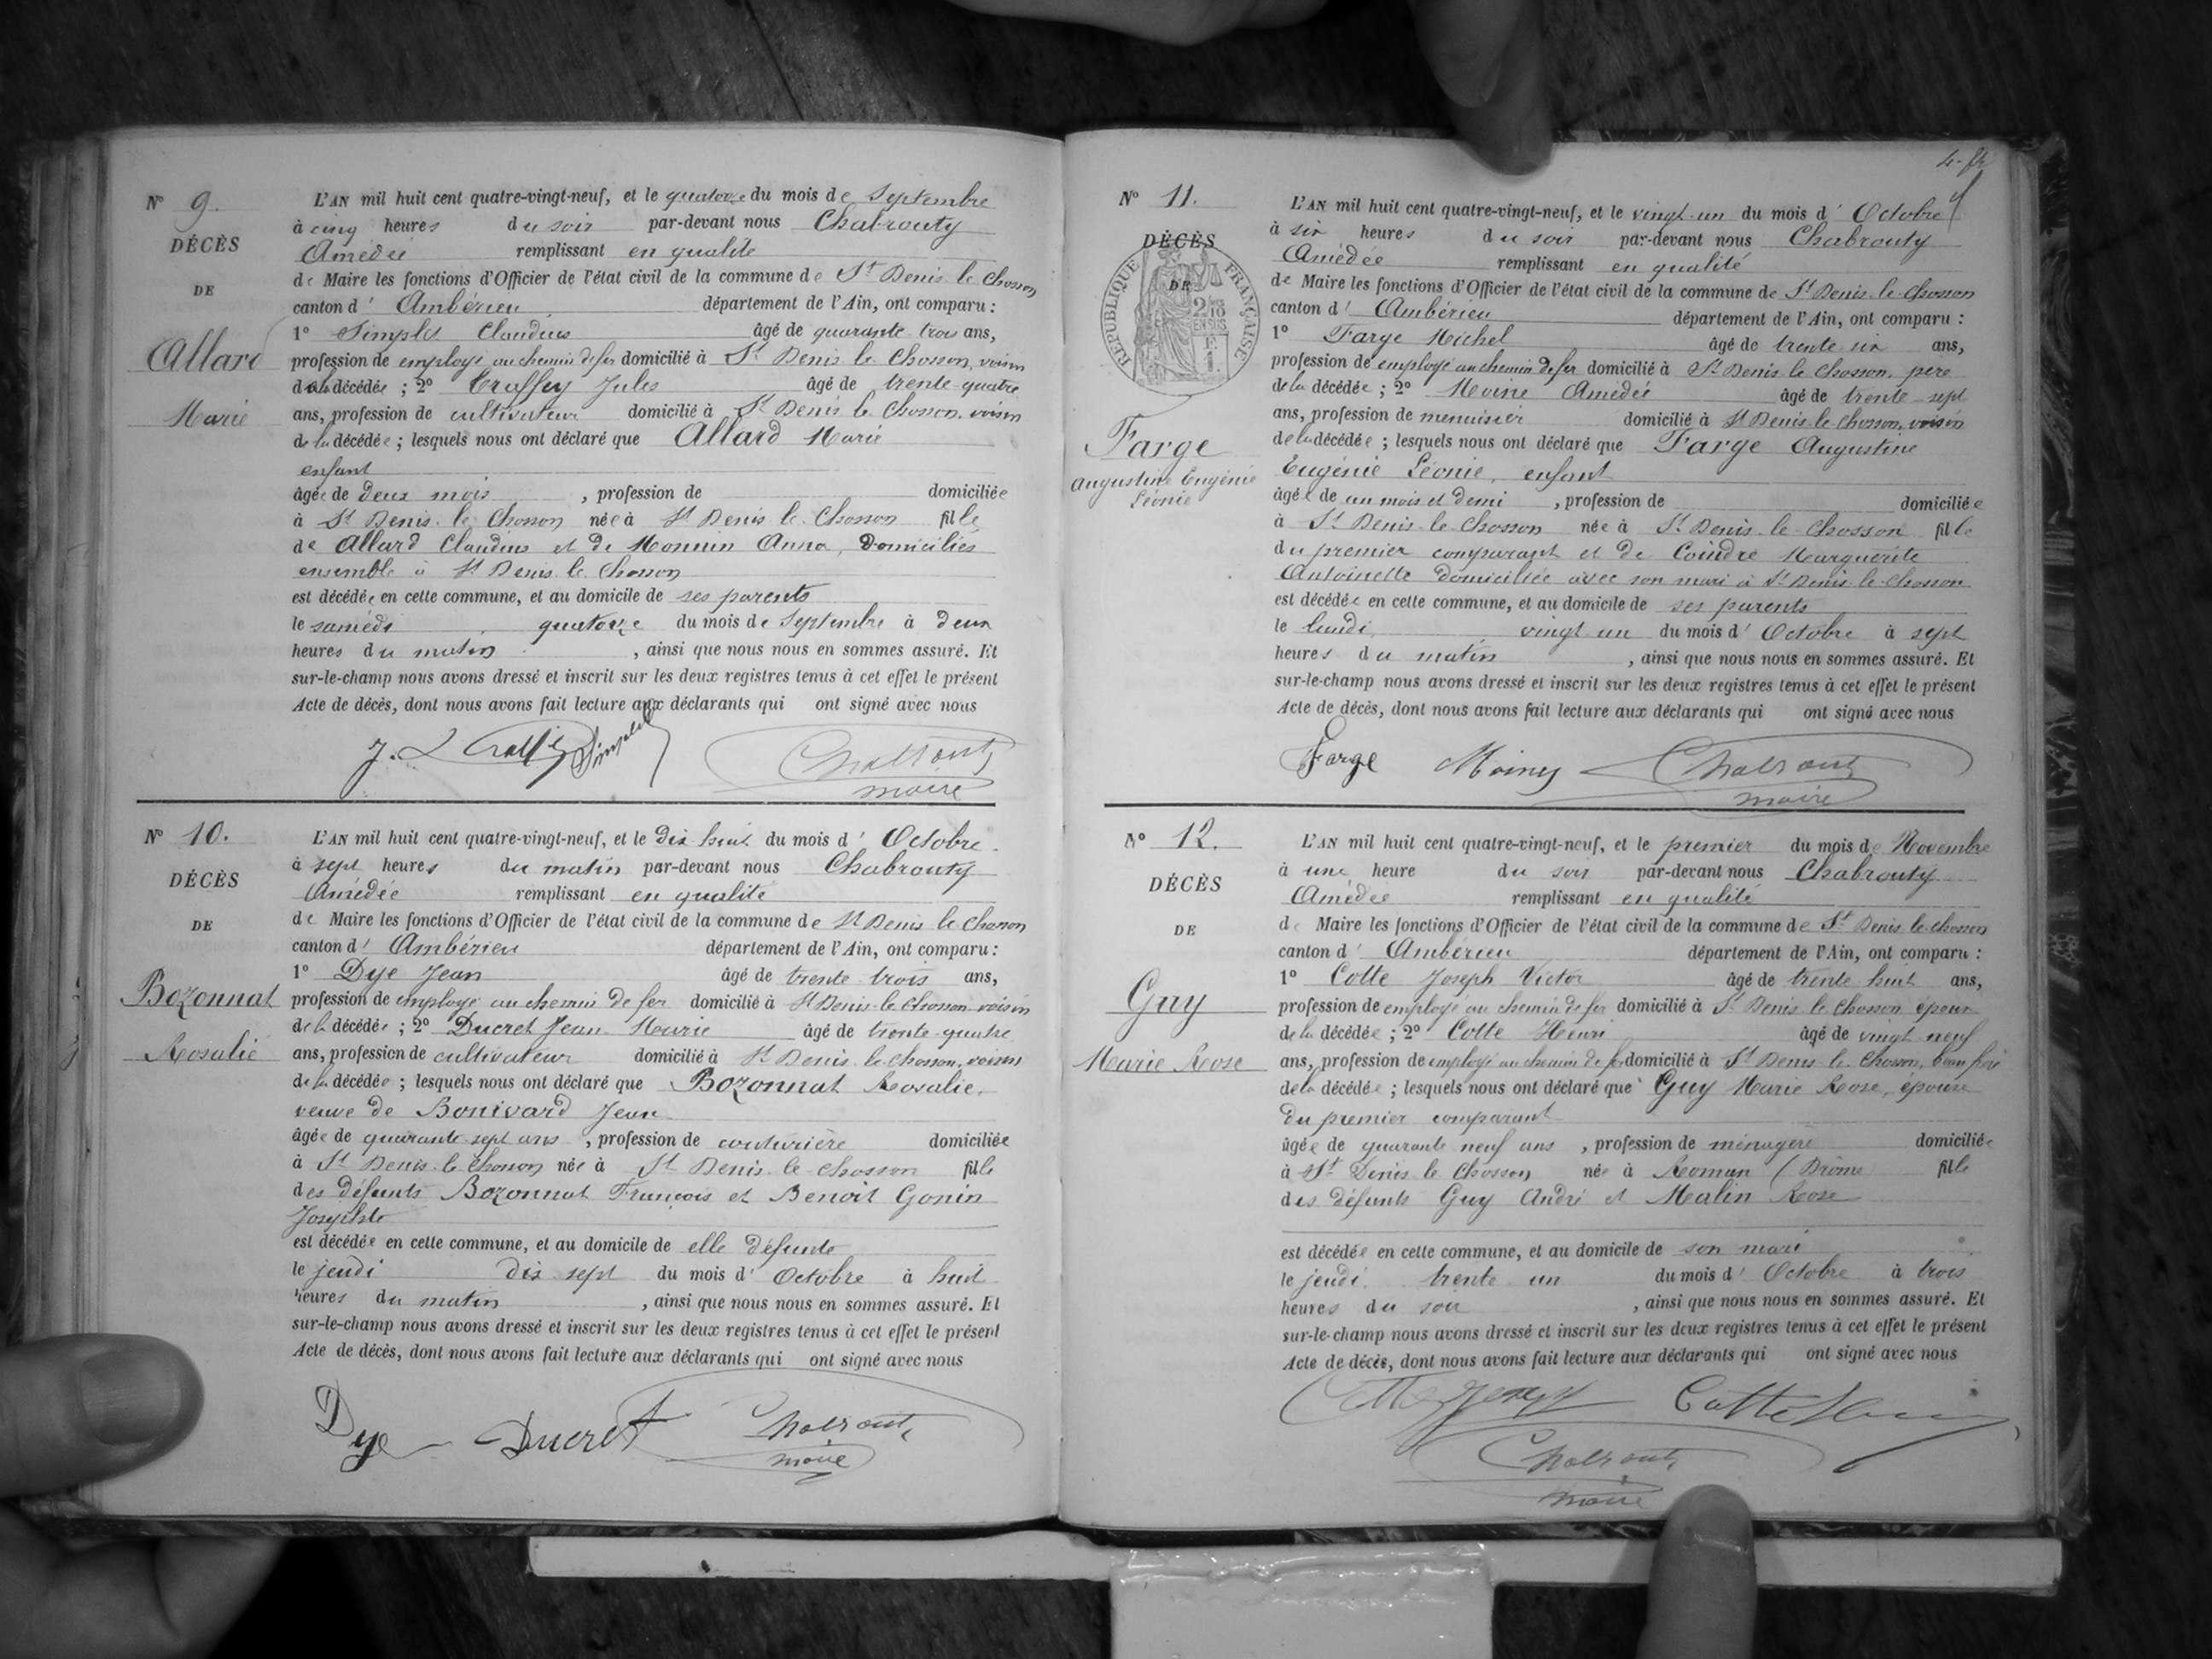 N° 9.
DÉCÈS
DE
Allard
Marie
L'AN mil huit cent quatre-vingt-neuf, et le quatorze du mois de Septembre
à cinq heures du soir par-devant nous Chabrouty
Amédée remplissant en qualité
de Maire les fonctions d'Officier de l'état civil de la commune de St Denis le Chosson
canton d' Ambérieu département de l'Ain, ont comparu :
1° Simplet Claudius âgé de quarante trois ans,
profession de employé au chemin de fer domicilié à St Denis le Chosson, voisin
de la décédée ; 2° Jules âgé de trente quatre
ans, profession de cultivateur domicilié à St Denis le Chosson, voisin
de la décédée ; lesquels nous ont déclaré que Allard Marie
enfant
âgée de deux mois , profession de domiciliée
à St Denis le Chosson née à St Denis le Chosson fille
de Allard Claudius et de Monnin Anna, domiciliés
ensemble à St Denis le Chosson
est décédée en cette commune, et au domicile de ses parents
le samedi quatorze du mois de Septembre à deux
heures du matin , ainsi que nous nous en sommes assuré. Et
sur-le-champ nous avons dressé et inscrit sur les deux registres tenus à cet effet le présent
Acte de décès, dont nous avons fait lecture aux déclarants qui ont signé avec nous
Simplet Chabrouty
maire
N° 10.
DÉCÈS
DE
Bozonnat
Rosalie
L'AN mil huit cent quatre-vingt-neuf, et le dix huit du mois d' Octobre
à sept heures du matin par-devant nous Chabrouty
Amédée remplissant en qualité
de Maire les fonctions d'Officier de l'état civil de la commune de St Denis le Chosson
canton d' Ambérieu département de l'Ain, ont comparu :
1° Dye Jean âgé de trente trois ans,
profession de employé au chemin de fer domicilié à St Denis le Chosson voisin
de la décédée ; 2° Ducret Jean Marie âgé de trente quatre
ans, profession de cultivateur domicilié à St Denis le Chosson, voisin
de la décédée ; lesquels nous ont déclaré que Bozonnat Rosalie,
veuve de Bonivard Jean
âgée de quarante sept ans , profession de couturière domiciliée
à St Denis le Chosson née à St Denis le Chosson fille
des défunts Bozonnat François et Benoit Gonin
Josephte
est décédée en cette commune, et au domicile de elle défunte
le jeudi dix sept du mois d' Octobre à huit
heures du matin , ainsi que nous nous en sommes assuré. Et
sur-le-champ nous avons dressé et inscrit sur les deux registres tenus à cet effet le présent
Acte de décès, dont nous avons fait lecture aux déclarants qui ont signé avec nous
Dye Ducret Chabrouty
maire
N° 11.
DÉCÈS
DE
RÉPUBLIQUE FRANÇAISE
2/10 EN SUS
Farge
Augustine Eugénie
Léonie
L'AN mil huit cent quatre-vingt-neuf, et le vingt un du mois d' Octobre
à six heures du soir par-devant nous Chabrouty
Amédée remplissant en qualité
de Maire les fonctions d'Officier de l'état civil de la commune de St Denis le Chosson
canton d' Ambérieu département de l'Ain, ont comparu :
1° Farge Michel âgé de trente six ans,
profession de employé au chemin de fer domicilié à St Denis le Chosson, père
de la décédée ; 2° Moine Amédée âgé de trente sept
ans, profession de menuisier domicilié à St Denis le Chosson, voisin
de la décédée ; lesquels nous ont déclaré que Farge Augustine
Eugénie Léonie, enfant
âgée de un mois et demi , profession de domiciliée
à St Denis le Chosson née à St Denis le Chosson fille
du premier comparant et de Coindre Marguerite
Antoinette domiciliée avec son mari à St Denis le Chosson
est décédée en cette commune, et au domicile de ses parents
le lundi vingt un du mois d' Octobre à sept
heures du matin , ainsi que nous nous en sommes assuré. Et
sur-le-champ nous avons dressé et inscrit sur les deux registres tenus à cet effet le présent
Acte de décès, dont nous avons fait lecture aux déclarants qui ont signé avec nous
Farge Chabrouty
maire
N° 12.
DÉCÈS
DE
Guy
Marie Rose
L'AN mil huit cent quatre-vingt-neuf, et le premier du mois de Novembre
à une heure du soir par-devant nous Chabrouty
Amédée remplissant en qualité
de Maire les fonctions d'Officier de l'état civil de la commune de St Denis le Chosson
canton d' Ambérieu département de l'Ain, ont comparu :
1° Cotte Joseph Victor âgé de trente huit ans,
profession de employé au chemin de fer domicilié à St Denis le Chosson époux
de la décédée ; 2° Cotte Henri âgé de vingt neuf
ans, profession de employé au chemin de fer domicilié à St Denis le Chosson, beau frère
de la décédée ; lesquels nous ont déclaré que Guy Marie Rose, épouse
du premier comparant
âgée de quarante neuf ans , profession de ménagère domiciliée
à St Denis le Chosson née à Roman (Drôme fille
des défunts Guy André et Malin Rose
est décédée en cette commune, et au domicile de son mari
le jeudi trente un du mois d' Octobre à trois
heures du soir , ainsi que nous nous en sommes assuré. Et
sur-le-champ nous avons dressé et inscrit sur les deux registres tenus à cet effet le présent
Acte de décès, dont nous avons fait lecture aux déclarants qui ont signé avec nous
Cotte Joseph Cotte Henri
Chabrouty
maire